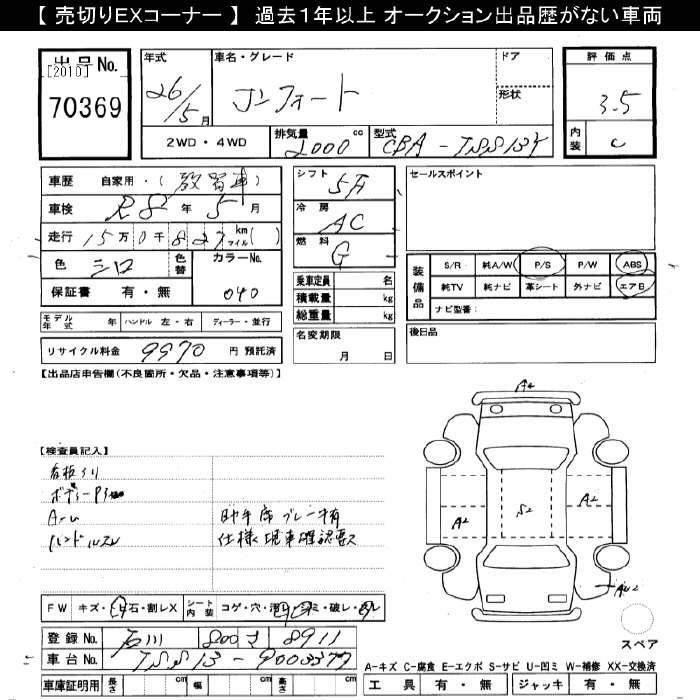 【 売切りEXコーナー 】 過去１年以上 オークション出品歴がない車両
出品 No.
[2010]
70369
年式
26/5月
車名・グレード
コンフォート
ドア
形状
評価点
3.5
内装
C
2WD・4WD
排気量
2000 cc
型式
CBA-TSS13Y
車歴 自家用・( 教習車 )
車検 R8年 5月
走行 15万0千827 km マイル( )
色 シロ
色替
カラーNo.
040
保証書 有・無
モデル年式 年 ハンドル 左・右 ディーラー・並行
リサイクル料金 9970 円 預託済
シフト
5F
冷房
AC
燃料
G
乗車定員 名
積載量 kg
総重量 kg
名変期限
月 日
セールスポイント
装備品
S/R 純A/W P/S P/W ABS
純TV 純ナビ 革シート 外ナビ エアB
ナビ型番:
後日品
【出品店申告欄(不良箇所・欠品・注意事項等)】
【検査員記入】
看板クリ
ハンドルスレ
助手席ブレーキ有
仕様現車確認要ス
A2
A2
S2
A2
FW キズ・ヒ石・割レX
シート内装 コゲ・穴・汚レ・シミ・破レ・スレ
登録 No. 石川 800 す 8911
車台 No. TSS13-9003377
車庫証明用 長さ cm 幅 cm 高さ cm
スペア
A-キズ C-腐食 E-エクボ S-サビ U-凹ミ W-補修 XX-交換済
工具 有・無 ジャッキ 有・無